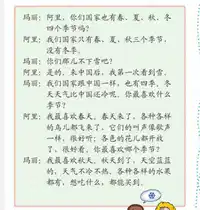 玛丽：阿里，你们国家也有春、夏、秋、冬
四个季节吗？
阿里：我们国家只有春、夏、秋三个季节，
没有冬季。
玛丽：你们那儿不下雪吧？
阿里：是的。来中国后，我第一次看到雪。
玛丽：我们国家跟中国一样，也有四季，冬
天天气比中国还冷呢。你最喜欢什么
季节？
阿里：我最喜欢春天。春天来了，各种各样
的鸟儿都飞来了，它们的叫声像歌声
一样，很好听；各色的花儿都开放
了，很好看。你最喜欢哪个季节？
玛丽：我最喜欢秋天。秋天到了，天空蓝蓝
的，天气不冷不热，各种各样的水果
都有，想吃什么，都能买到。